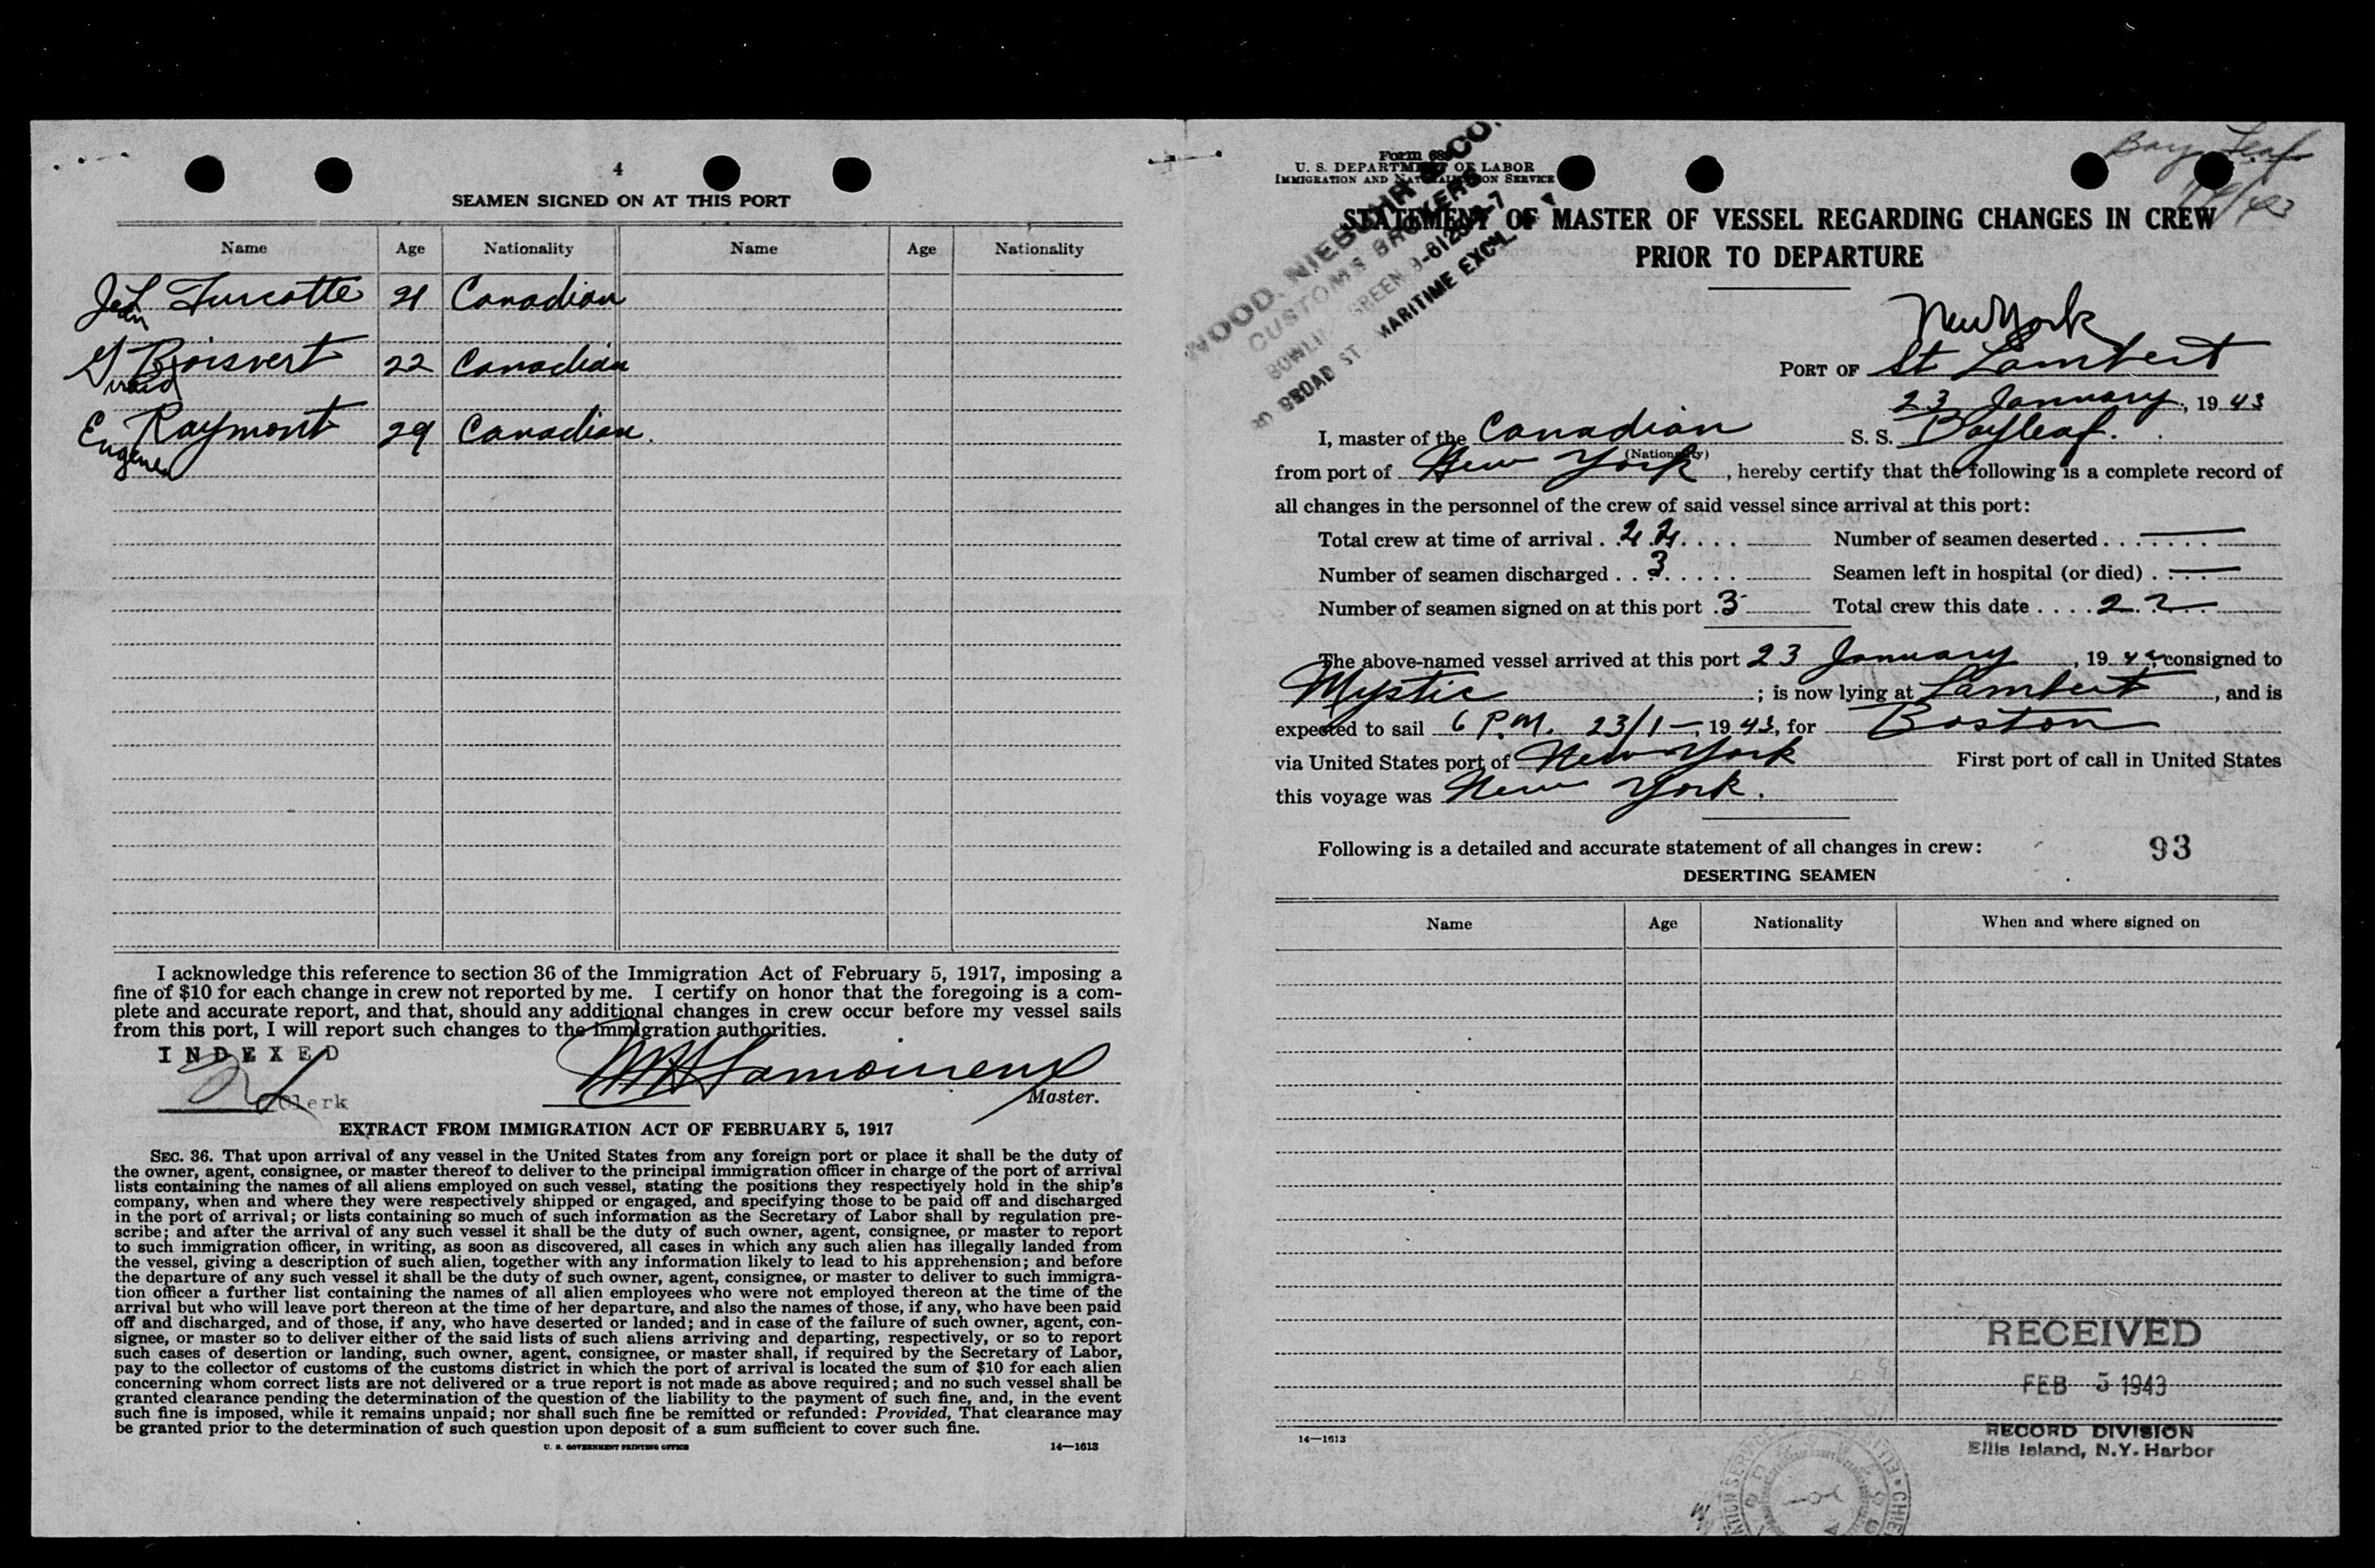 4
SEAMEN SIGNED ON AT THIS PORT
Name Age Nationality Name Age Nationality
Jean Turcotte 21 Canadian
G Boisvert 22 Canadian
Eugene Raymont 29 Canadian.
I acknowledge this reference to section 36 of the Immigration Act of February 5, 1917, imposing a
fine of $10 for each change in crew not reported by me. I certify on honor that the foregoing is a com-
plete and accurate report, and that, should any additional changes in crew occur before my vessel sails
from this port, I will report such changes to the immigration authorities.
INDEXED
Clerk
Master.
EXTRACT FROM IMMIGRATION ACT OF FEBRUARY 5, 1917
SEC. 36. That upon arrival of any vessel in the United States from any foreign port or place it shall be the duty of
the owner, agent, consignee, or master thereof to deliver to the principal immigration officer in charge of the port of arrival
lists containing the names of all aliens employed on such vessel, stating the positions they respectively hold in the ship's
company, when and where they were respectively shipped or engaged, and specifying those to be paid off and discharged
in the port of arrival; or lists containing so much of such information as the Secretary of Labor shall by regulation pre-
scribe; and after the arrival of any such vessel it shall be the duty of such owner, agent, consignee, or master to report
to such immigration officer, in writing, as soon as discovered, all cases in which any such alien has illegally landed from
the vessel, giving a description of such alien, together with any information likely to lead to his apprehension; and before
the departure of any such vessel it shall be the duty of such owner, agent, consignee, or master to deliver to such immigra-
tion officer a further list containing the names of all alien employees who were not employed thereon at the time of the
arrival but who will leave port thereon at the time of her departure, and also the names of those, if any, who have been paid
off and discharged, and of those, if any, who have deserted or landed; and in case of the failure of such owner, agent, con-
signee, or master so to deliver either of the said lists of such aliens arriving and departing, respectively, or so to report
such cases of desertion or landing, such owner, agent, consignee, or master shall, if required by the Secretary of Labor,
pay to the collector of customs of the customs district in which the port of arrival is located the sum of $10 for each alien
concerning whom correct lists are not delivered or a true report is not made as above required; and no such vessel shall be
granted clearance pending the determination of the question of the liability to the payment of such fine, and, in the event
such fine is imposed, while it remains unpaid; nor shall such fine be remitted or refunded: Provided, That clearance may
be granted prior to the determination of such question upon deposit of a sum sufficient to cover such fine.
U. S. GOVERNMENT PRINTING OFFICE 14—1613
Form
U. S. DEPARTMENT OF LABOR
IMMIGRATION AND NATURALIZATION SERVICE
Bay Leaf
WOOD, NIEBUHR & CO.
CUSTOMS BROKERS
BOWLING GREEN
BROAD ST. MARITIME EXCH.
STATEMENT OF MASTER OF VESSEL REGARDING CHANGES IN CREW
PRIOR TO DEPARTURE
New York
PORT OF St Lambert
23 January, 1943
I, master of the Canadian S. S. Bayleaf.
(Nationality)
from port of New York, hereby certify that the following is a complete record of
all changes in the personnel of the crew of said vessel since arrival at this port:
Total crew at time of arrival Number of seamen deserted —
Number of seamen discharged 3 Seamen left in hospital (or died) —
Number of seamen signed on at this port 3 Total crew this date 22
The above-named vessel arrived at this port 23 January, 19 consigned to
Mystic; is now lying at Lambert, and is
expected to sail 6 P.M. 23/1—, 1943, for Boston
via United States port of New York First port of call in United States
this voyage was New York.
Following is a detailed and accurate statement of all changes in crew: 93
DESERTING SEAMEN
Name Age Nationality When and where signed on
RECEIVED
FEB 5 1943
RECORD DIVISION
Ellis Island, N.Y. Harbor
14—1613